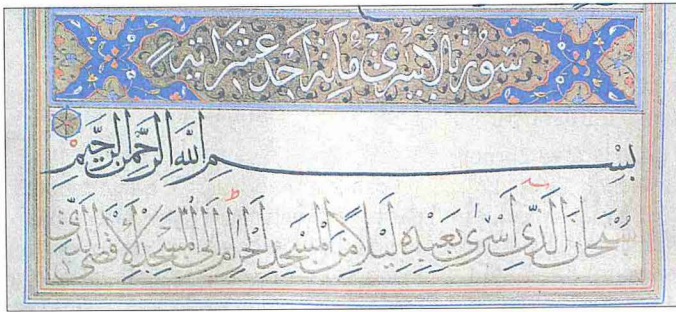 سورة الإسرى مائة احد عشر اية
بسم الله الرحمن الرحيم
سُبْحَانَ الَّذِي اَسْرٰى بِعَبْدِهِ لَيْلًا مِنَ الْمَسْجِدِ الْحَرَامِ اِلَى الْمَسْجِدِ الْاَقْصَى الَّذِي